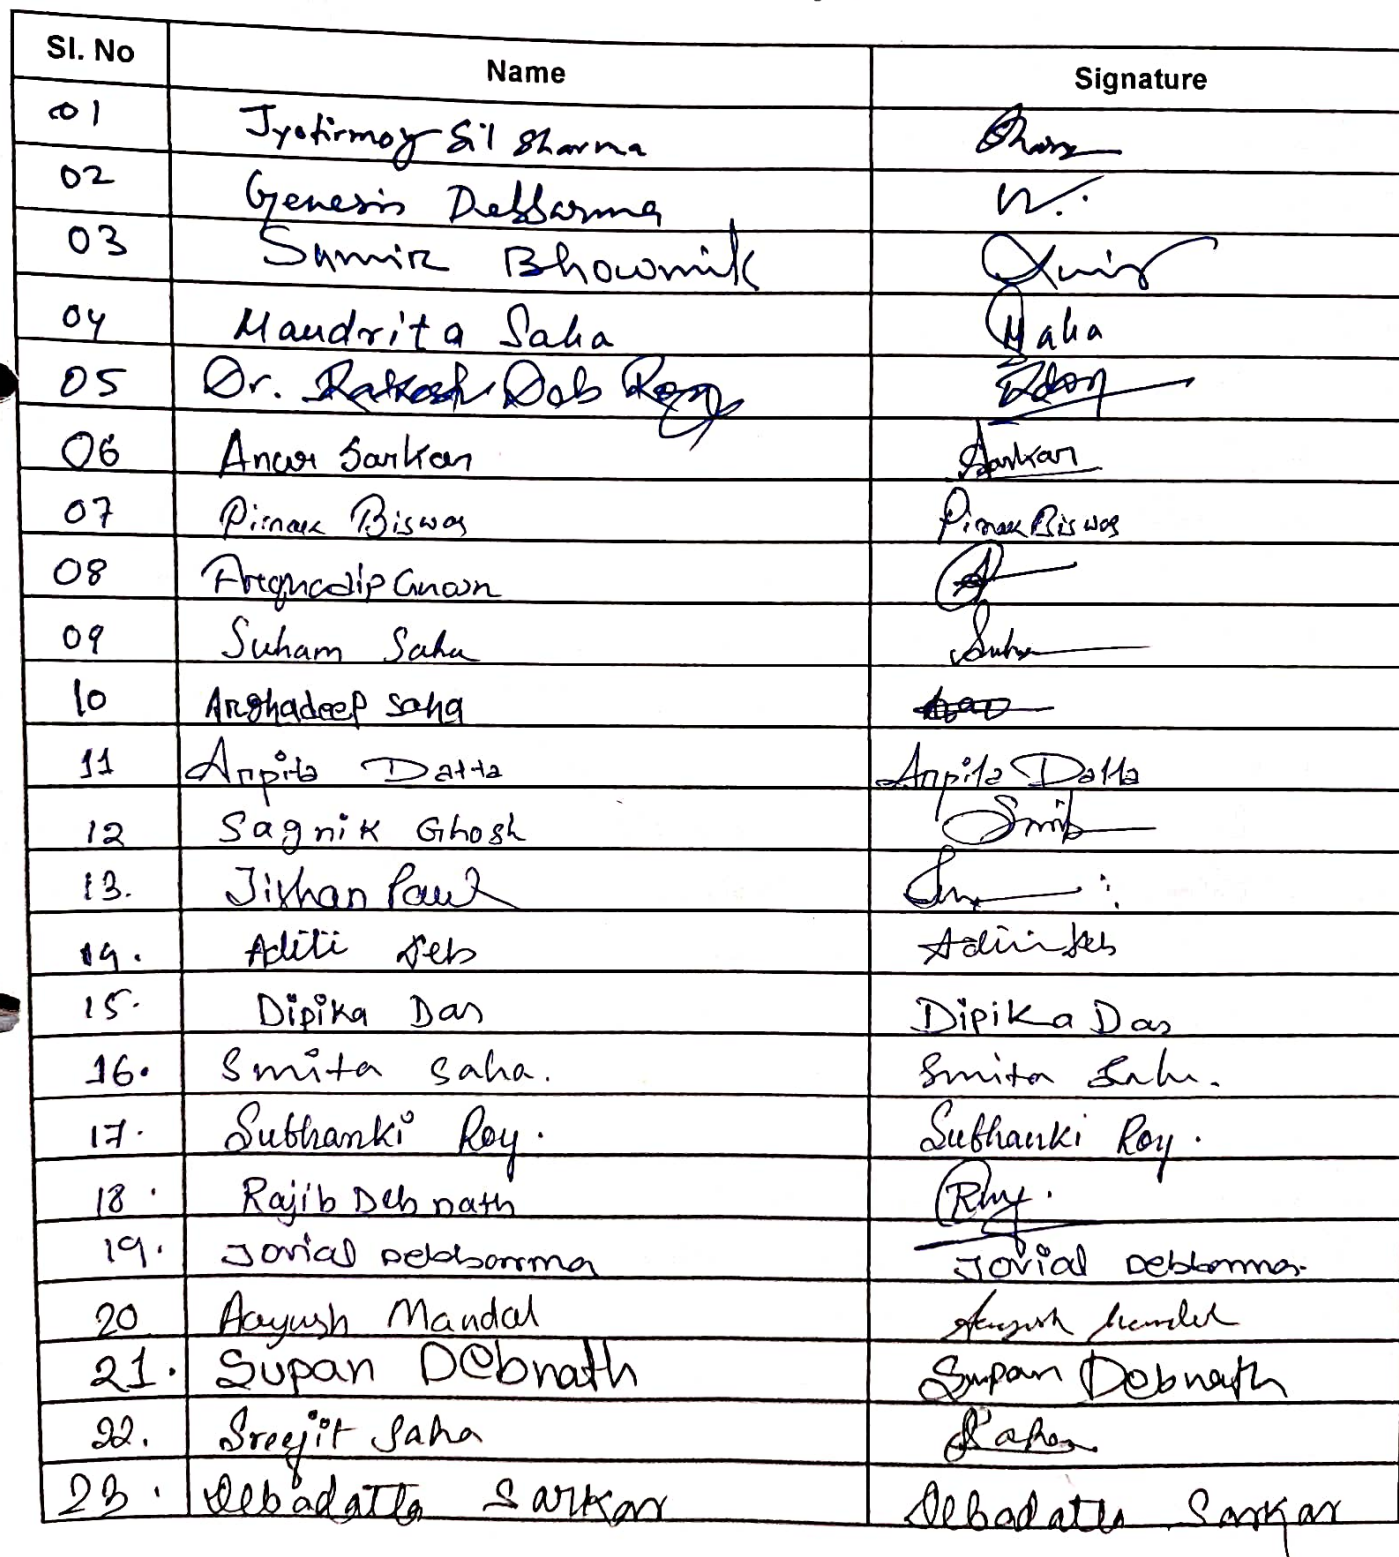 Sl. No Name Signature
01 Jyotirmoy Sil Sharma
02 Genesis Debbarma
03 Samir Bhowmik
04 Mandrita Saha Saha
05 Dr. Rakesh Deb Roy
06 Sarkar Sarkar
07 Pinak Biswas Pinak Biswas
08
09 Suham Saha
10 Arghadeep Saha
11 Arpita Datta Arpita Datta
12 Sagnik Ghosh
13. Jishan Paul
14. Aditi Deb Aditi Deb
15. Dipika Das Dipika Das
16. Smita Saha. Smita Saha.
17. Subhanki Roy. Subhanki Roy.
18. Rajib Debnath
19. Jovial Debbarma Jovial Debbarma
20 Aayush Mandal Aayush Mandal
21. Supan Debnath Supan Debnath
22. Sreejit Saha Saha
23. Debadatta Sarkar Debadatta Sarkar